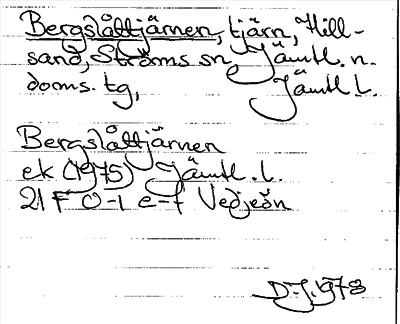 Bergslåttjärnen, tjärn, Hill-
sand, Ströms sn, Jämtl. n.
doms. tg, Jämtl. l.
Bergslåttjärnen
ek (1975) Jämtl. l.
21 F 0-1 e-f Vedjeön
D-J. 1978